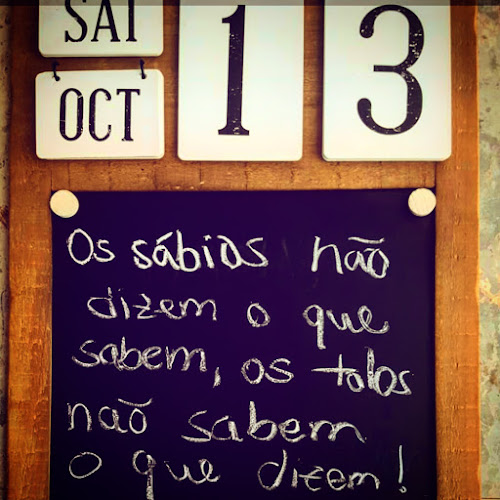 SAT
OCT
13
Os sábios não
dizem o que
sabem, os tolos
não sabem
o que dizem!